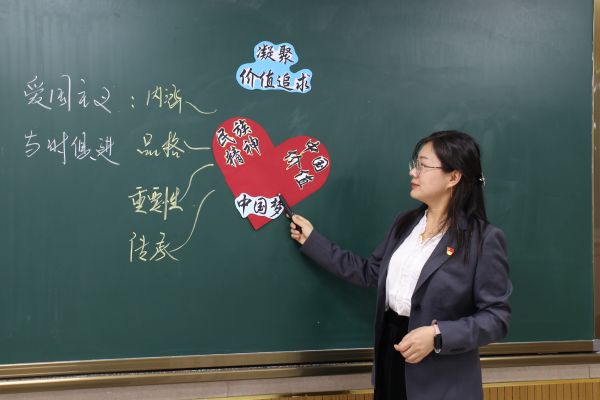 凝聚
价值追求
爱国主义：内涵
与时俱进 品格
重要性
传承
民族
精神
中国
价值
中国梦